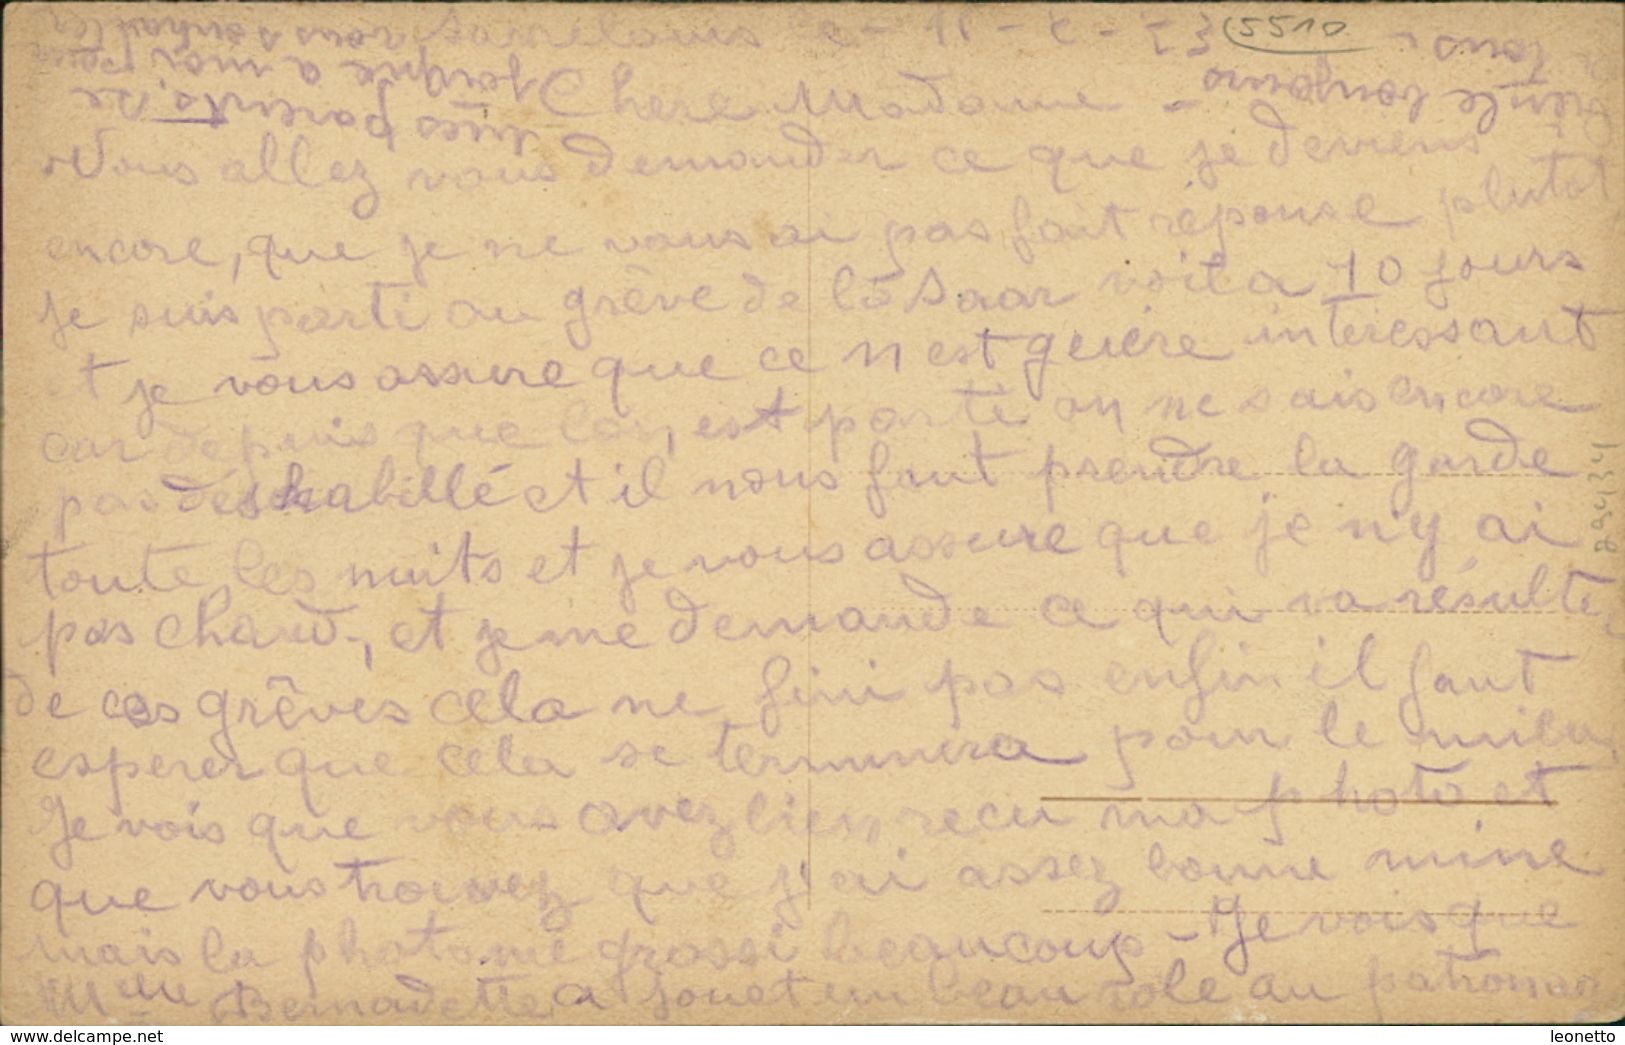 Sarrelouis le - 11 - 2 - 23 5510
Chere Madame -
Vous allez vous demander ce que je deviens
encore, que je ne vous ai pas fait réponse plutot
je suis parti au grève de la Saar voila 10 jours
et je vous assure que ce n est guière interessant
car depuis que lon est parti on ne sais encore
pas déshabillé et il nous faut prendre la garde
toute les nuits et je vous assure que je n'y ai
pas chaud, et je me demande ce qui va résulte
de ces grêves cela ne fini pas enfin il faut
esperer que cela se terminera pour le mieu
Je vois que vous avez bien recu ma photo et
que vous trouvez que j'ai assez bonne mine
mais la photo me grossi beaucoup - Je vois que
Melle Bernadette a jouet un beau role au patronage
mes parents se
joigne a moi pour
vous souhaiter
bien le bonjour
tous
leonetto